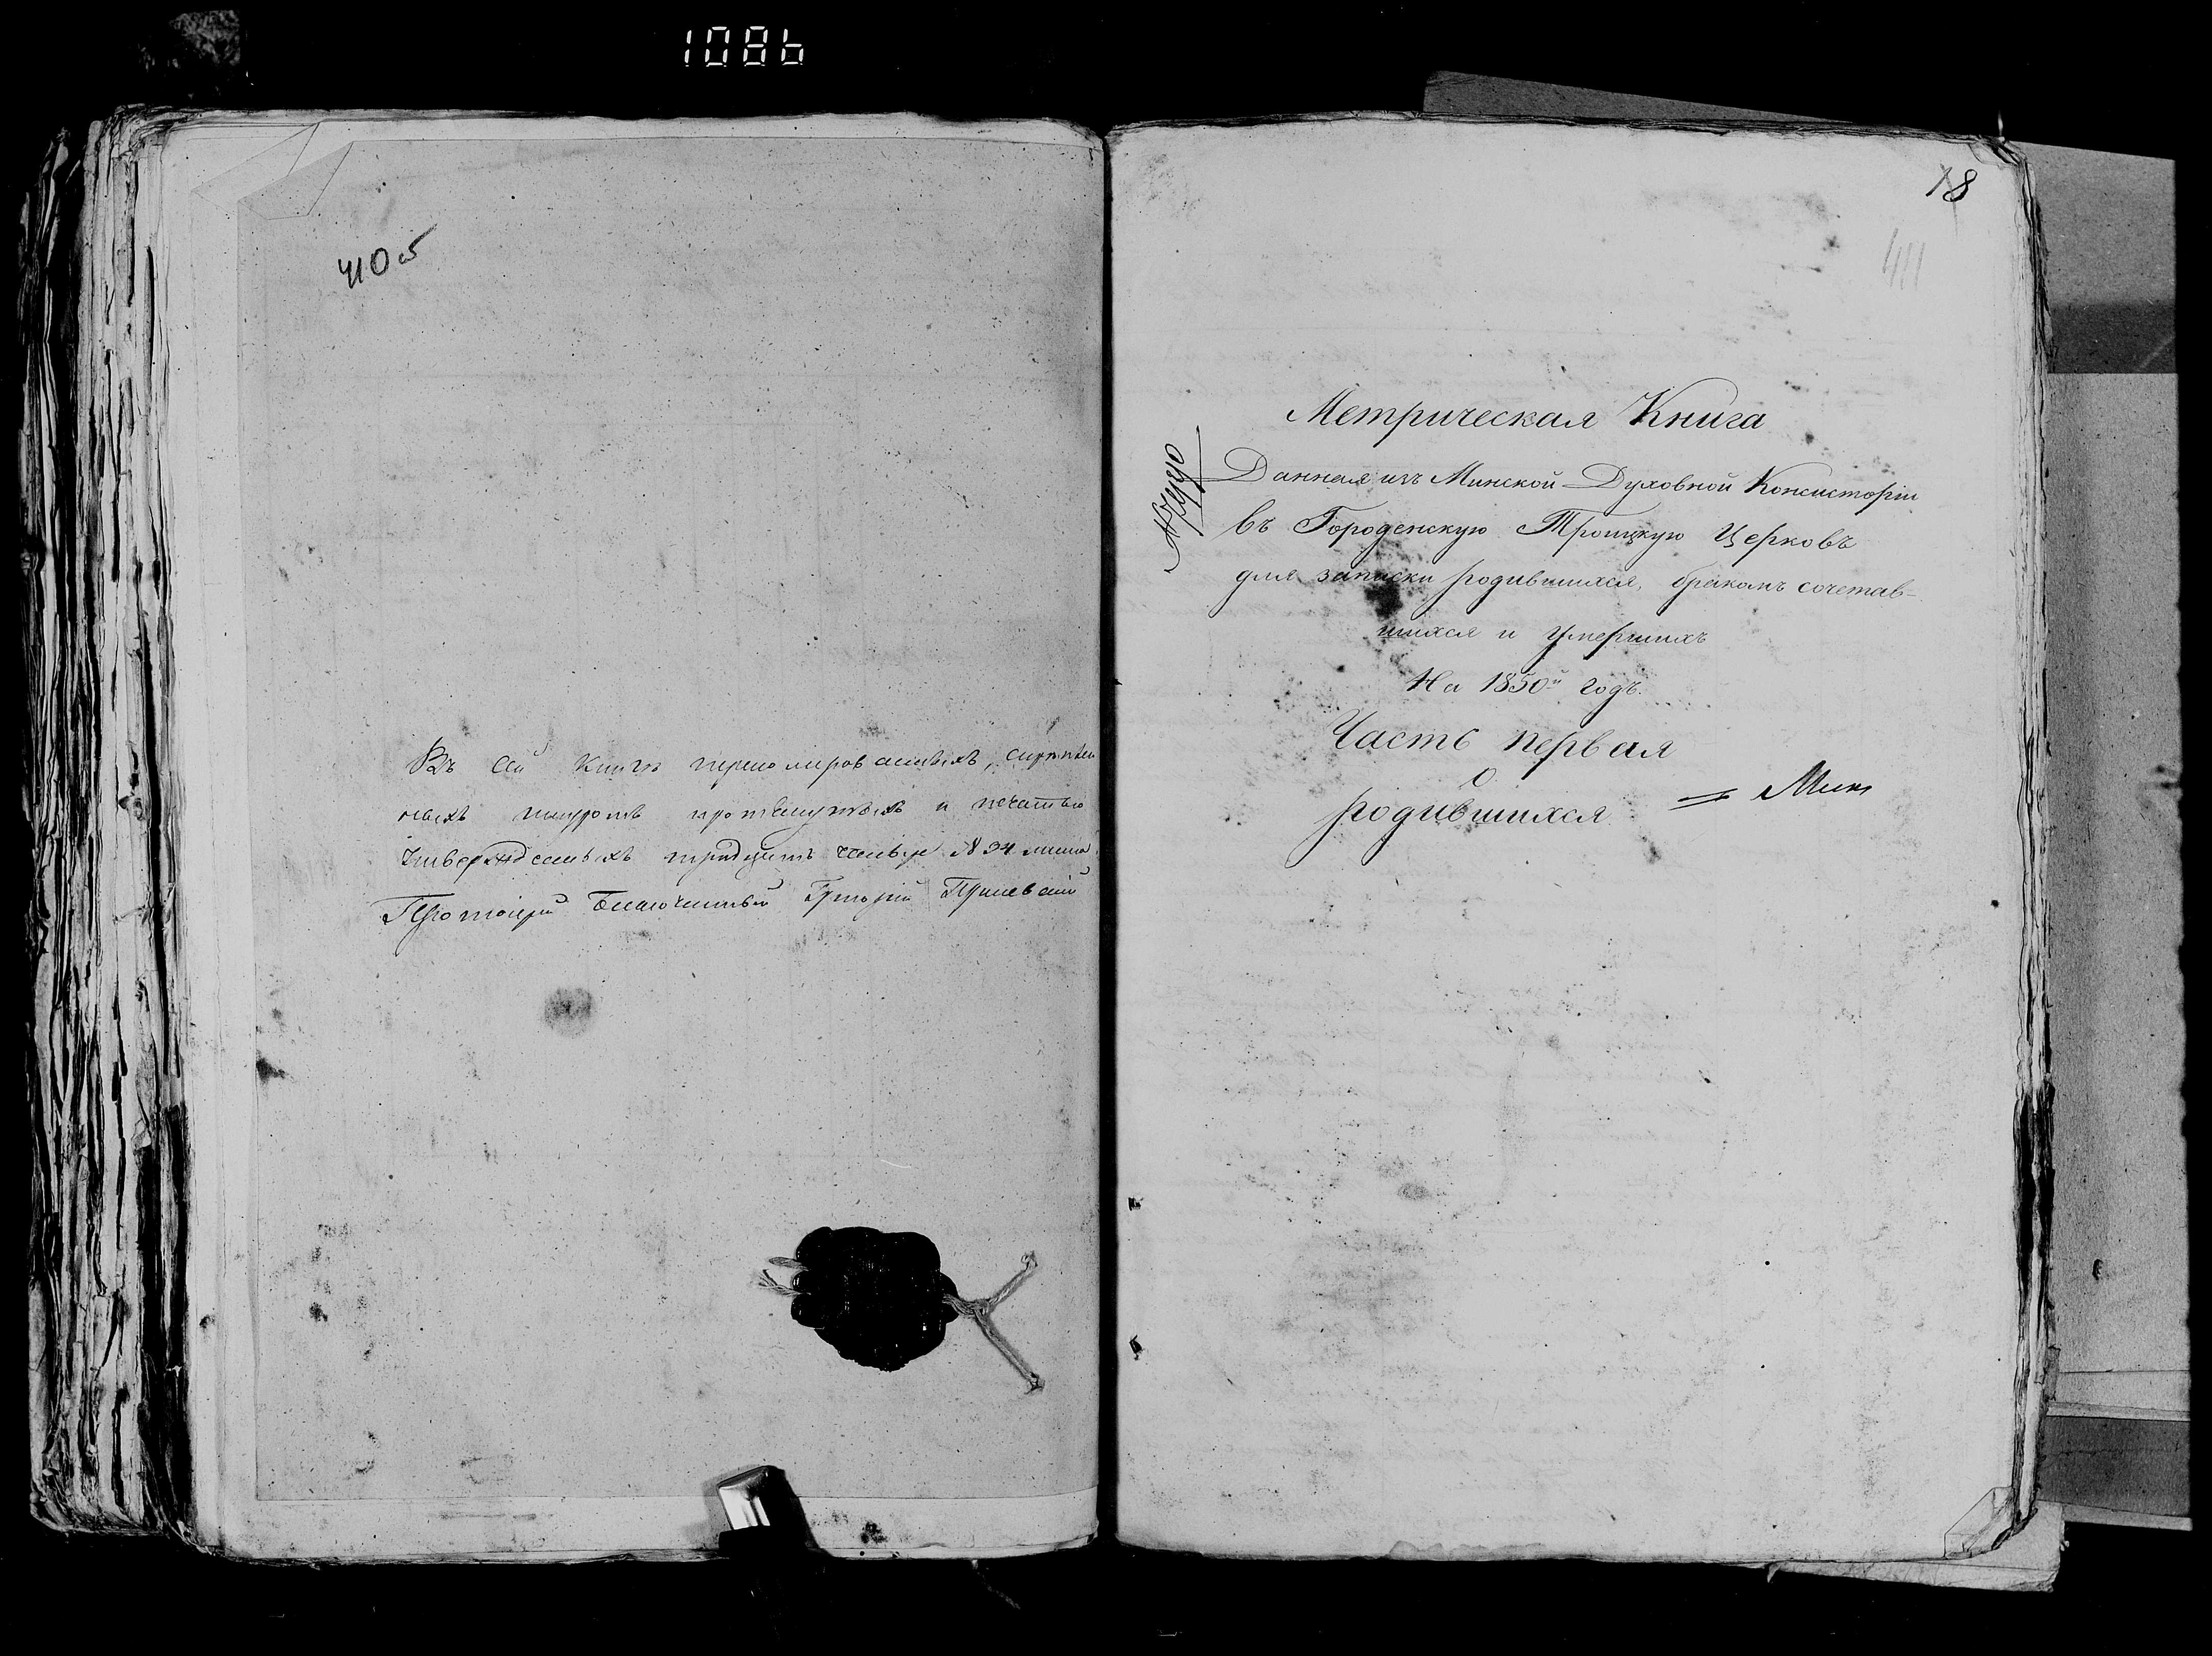 1086
410 об
Въ сей Книгѣ перенумерованныхъ,
ныхъ шнуромъ протянутыхъ и печатью
утвержденныхъ тридцать четыре № 34 листа
Протоіерей Благочинный Григорій
18
411
Метрическая Книга
Данная изъ Минской Духовной Консисторіи
въ Городенскую Троицкую Церковь
для записки родившихся, бракомъ сочетав-
шихся и умершихъ
На 1850й годъ.
Часть первая
О
родившихся = Мин